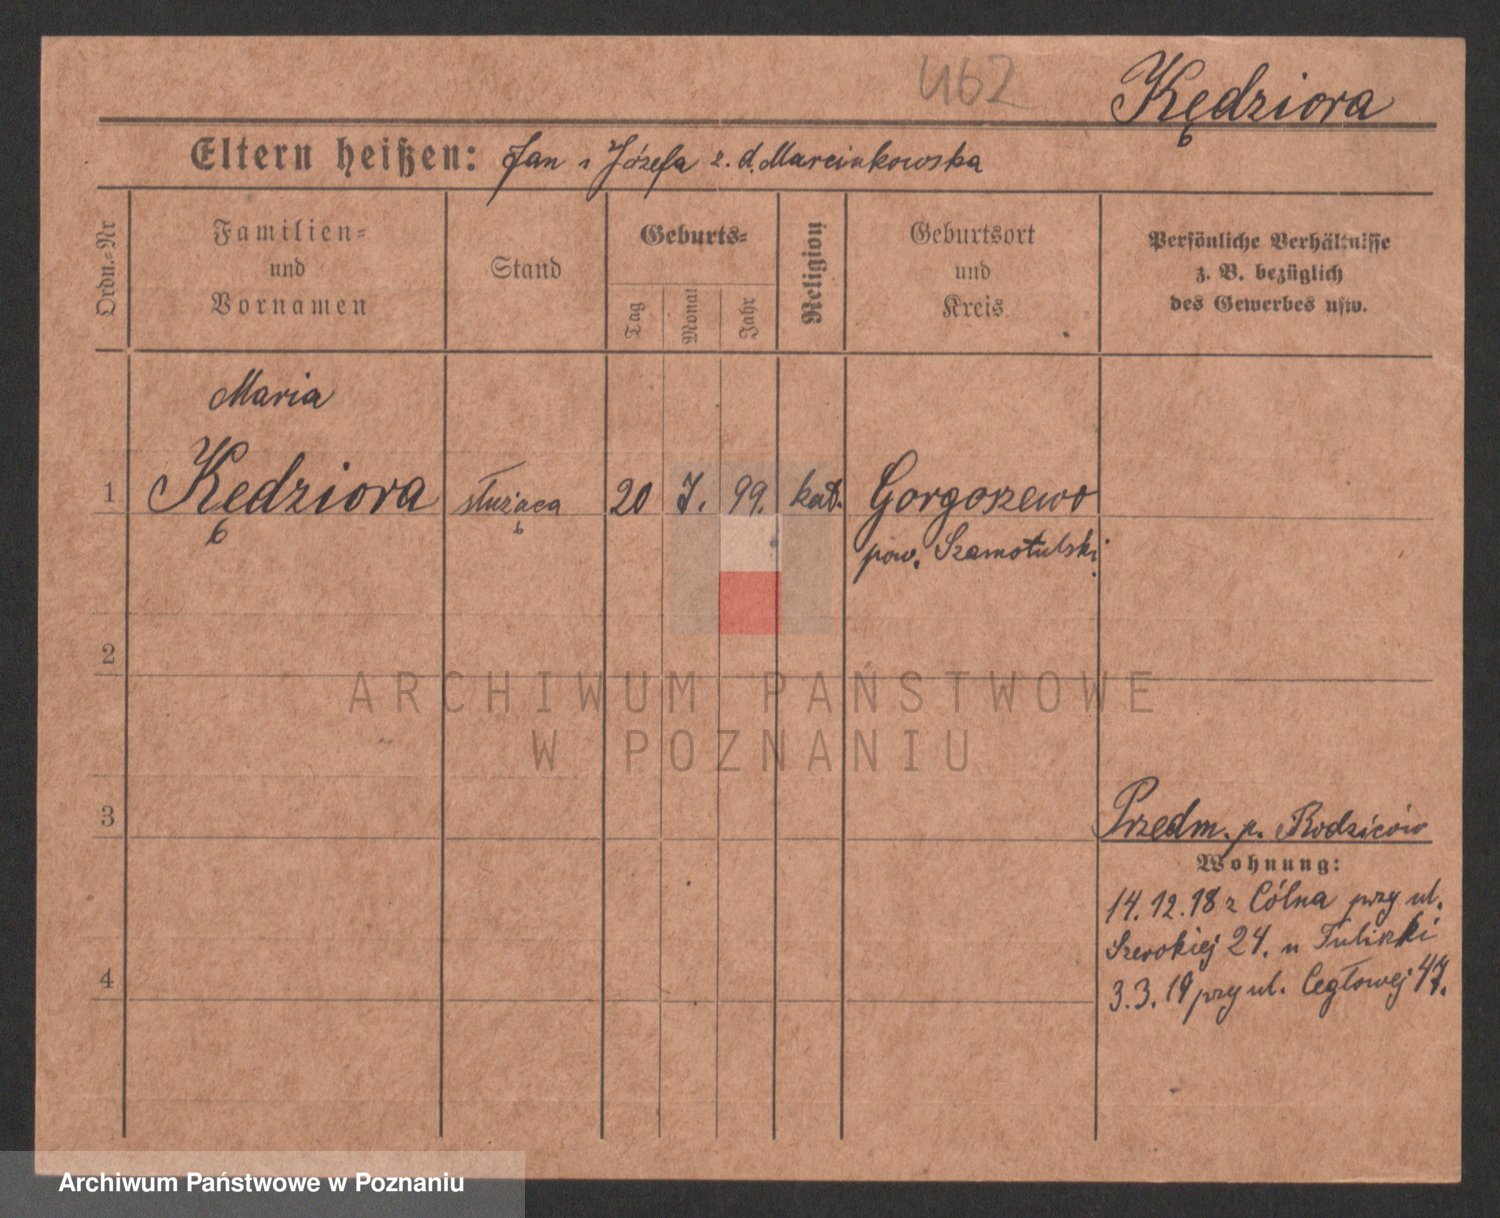 462
Kędziora
Eltern heißen: Jan i Józefa z. d. Marcinkowska
Ordn.-Nr
Familien-
und
Vornamen
Stand
Geburts-
Tag
Monat
Jahr
Religion
Geburtsort
und
Kreis
Persönliche Verhältnisse
z. B. bezüglich
des Gewerbes usw.
Maria
1 Kędziora służąca 20 7. 99. kat. Gorgoszewo
pow. Szamotulski
2
ARCHIWUM PAŃSTWOWE
W POZNANIU
3
Przedm. p. Rodziców
Wohnung:
14.12.18 z Cólna przy ul.
Szerokiej 24. u
4
3.3.19 przy ul. Cegłowej 47.
Archiwum Państwowe w Poznaniu